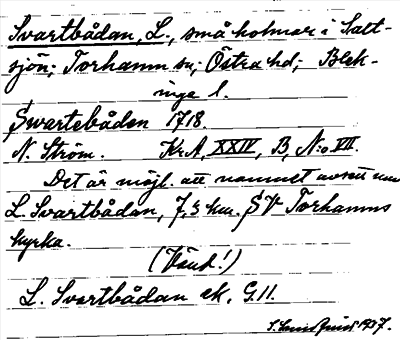 Svartbådan, L., små holmar i Salt-
sjön; Torhamn sn; Östra hd; Blek-
inge l.
Swartebåden 1718.
N. Ström. KrA, XXIV, B, N:o VII.
Det är möjl. att namnet avsett ena
L. Svartbådan, 7,5 km. SV Torhamns
kyrka.
(Vänd!)
L. Svartbådan ek. G.11.
1937.